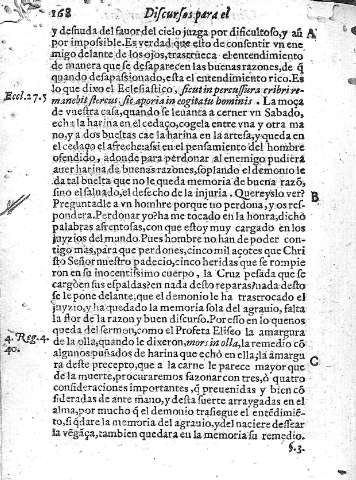 168
Discursos para el
y desnuda del fauor del cielo juzga por dificultoso, y aũ
por impossible. Es verdad que esto de consentir vn ene
migo delante de los ojos, trastrueca el entendimiento
de manera que se desaparecen las buenas razones, de q̃
quando desapassionado, esta el entendimiento rico. Es
lo que dixo el Eclesiastico, sicut in percussura cribri re-
manebit stercus, sic aporia in cogitatu hominis. La moça
de vuestra casa, quando se leuanta a cerner vn Sabado,
echa la harina en el cedaço, cogela entre vna y otra ma
no, y a dos bueltas cae la harina en la artesa, y queda en
el cedaço el afreche: assi en el pensamiento del hombre
ofendido, adonde para perdonar al enemigo pudiera
auer harina de buenas razones, soplando el demonio le
da tal buelta que no le queda memoria de buena razõ,
sino el saluado, el defecho de la injuria. Quereyslo ver?
Preguntadle a vn hombre porque no perdona, y os res-
pondera. Perdonar yo? ha me tocado en la honra, dicho
palabras afrentosas, con que estoy muy cargado en los
juyzios del mundo. Pues hombre no han de poder con
tigo mas, para que perdones, cinco mil açotes que Chri
sto Señor nuestro padecio, cinco heridas que se rompie
ron en su inocentissimo cuerpo, la Cruz pesada que se
cargò en sus espaldas? en nada desto reparas? nada desto
se le pone delante, que el demonio le ha trastrocado el
juyzio, y ha quedado la memoria sola del agrauio, falta
la flor de la razon y buen discurso. Por esso en lo que nos
queda del sermon, como el Profeta Eliseo la amargura
de la olla, quando le dixeron, mors in olla, la remedio cõ
algunos puñados de harina que echò en ella; la amargu
ra deste precepto, que a la carne le parece mayor que
de la muerte, procuraremos sazonar con tres, ò quatro
consideraciones importantes, q̃ preuenidas y bien cõ
sideradas de ante mano, y desta suerte arraygadas en el
alma, por mucho q̃ el demonio trasiegue el entẽdimiẽ-
to, si q̃dare la memoria del agrauio, y del naciere dessear
la vẽgãça, tambien quedara en la memoria su remedio.
§.3.
A
Eccl. 27. 5
B
4. Reg. 4.
40.
C